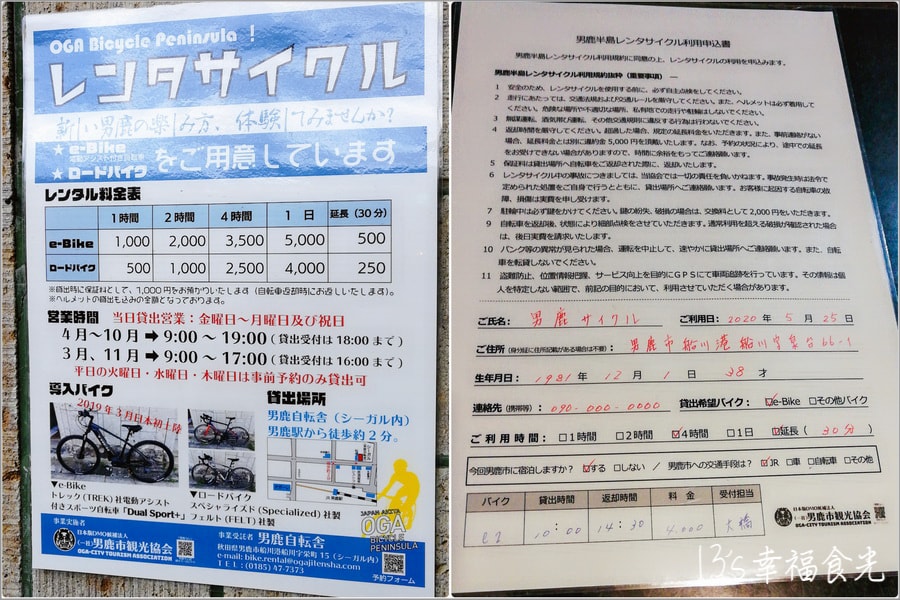 OGA Bicycle Peninsula !
レンタサイクル
新しい男鹿の楽しみ方、体験してみませんか?
★ e-Bike
電動アシスト付き自転車
★ ロードバイク
をご用意しています
レンタル料金表
1時間 2時間 4時間 1日 延長(30分)
e-Bike 1,000 2,000 3,500 5,000 500
ロードバイク 500 1,000 2,500 4,000 250
※貸出時に保証料として、1,000円をお預かりいたします(自転車返却時にお返しいたします)。
※ヘルメットの貸出も込みの金額となっております。
営業時間 当日貸出営業:金曜日~月曜日及び祝日
4月~10月 ➡ 9:00 ~ 19:00 (貸出受付は 18:00 まで)
3月、11月 ➡ 9:00 ~ 17:00 (貸出受付は 16:00 まで)
平日の火曜日・水曜日・木曜日は事前予約のみ貸出可
導入バイク
2019年3月日本初上陸
▼e-Bike
トレック(TREK)社電動アシスト
付きスポーツ自転車「Dual Sport+」
▼ロードバイク
スペシャライズド(Specialized)社製
フェルト(FELT)社製
貸出場所
男鹿自転舎(シーガル内)
男鹿駅から徒歩約2分。
JAPAN AKITA
OGA
BICYCLE
PENINSULA
予約フォーム
事業実施者
日本版DMO候補法人
(一社)男鹿市観光協会
OGA-CITY TOURISM ASSOCIATION
事業受託者 男鹿自転舎
秋田県男鹿市船川港船川字栄町15(シーガル内)
e-mail: bike.rental@ogajitensha.com
TEL:(0185)47-7373
男鹿半島レンタサイクル利用申込書
男鹿半島レンタサイクル利用規約に同意の上、レンタサイクルの利用を申込みます。
男鹿半島レンタサイクル利用規約抜粋(重要事項)
1 安全のため、レンタサイクルを使用する前に、必ず自主点検をしてください。
2 走行にあたっては、交通法規および交通ルールを厳守してください。また、ヘルメットは必ず着用して
ください。危険な場所や不適切な場所、私有地での走行や駐輪はしないでください。
3 無謀運転、酒気帯び運転、その他交通規用に違反する行為は行わないでください。
4 返却時間を厳守してください。超過した場合、規定の延長料金をいただきます。また、事前連絡がない
場合、延長料金とは別に違約金5,000円を頂戴いたします。なお、予約の状況により、途中での延長
をお受けできない場合がありますので、時間に余裕をもってご連絡願います。
5 保証料は貸出場所へ自転車をご返却された際に、返却いたします。
6 レンタサイクル中の事故につきましては、当協会では一切の責任を負いかねます。事故発生時は法令で
定められた処置をご自身で行うとともに、貸出場所へご連絡願います。お客様に起因する自転車の故
障、損傷は実費を申し受けます。
7 駐輪中は必ず鍵をかけてください。鍵の紛失、破損の場合は、交換料として2,000円をいただきます。
9 自転車を返却後、状態により細部点検をさせていただきます。通常利用を超える破損が確認された場合
は、後日実費を請求いたします。
10 パンク等の異常が見られた場合、運転を中止して、速やかに貸出場所へご連絡願います。また、自転
車を転貸しないでください。
11 盗難防止、位置情報把握、サービス向上を目的にGPSにて車両追跡を行っています。その情報は個
人を特定しない範囲で、前記の目的において、利用させていただく場合があります。
ご氏名: 男鹿 サイクル ご利用日: 2020年 5月 25日
ご住所(身分証に住所記載がある場合は不要): 男鹿市船川港船川字泉台66-1
生年月日: 1981年 12月 1日 38才
連絡先(携帯等): 090-000-0000 貸出希望バイク: ☑e-Bike □その他バイク
ご利用時間: □1時間 □2時間 ☑4時間 □1日 ☑延長( 30分 )
今回男鹿市に宿泊しますか? ☑する □しない / 男鹿市への交通手段は? ☑JR □車 □自転車 □その他
バイク 貸出時間 返却時間 料金 受付担当
e2 10:00 14:30 4,000 大橋
日本版DMO候補法人
(一社)男鹿市観光協会
OGA-CITY TOURISM ASSOCIATION
13's幸福食光